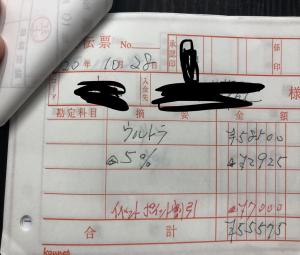 伝票 No.
承認印
係印
20年 10月 28日
コード
入金先
様
勘定科目 摘要 金額
ウルトラ ¥58500
▲5% ▲¥2925
イベントポイント割引 ▲¥7000
合計 ¥55575
kaunet